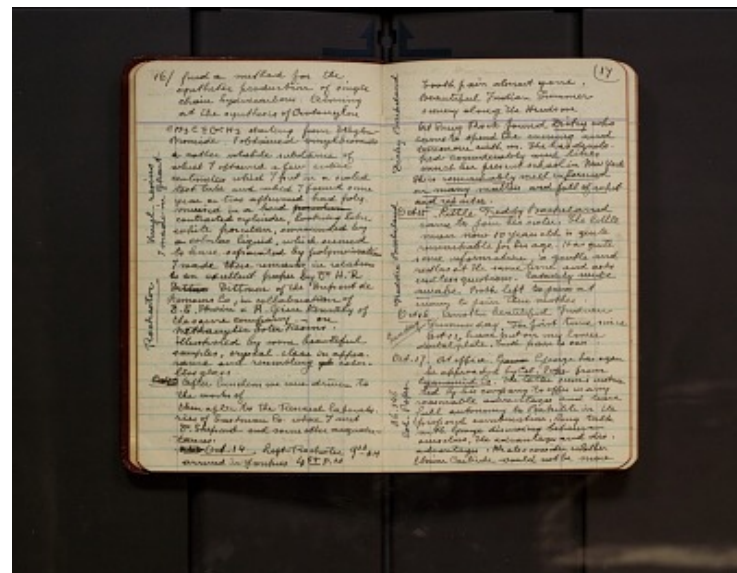 16/ find a method for the
synthetic production of single
chain hydrocarbons. Aiming
at the synthesis of
starting from
bromide. I obtained
a rather volatile substance of
which I obtained a few cubic
centimeters which I put in a sealed
test tube and which I found some
year or two afterward had poly-
merized in a hard
contracted cylinder, looking like
white porcelain, surrounded by
a colorless liquid, which seemed
to have separated by polymerization
I made these remarks in relation
to an excellent paper by Dr H. R
Dittmar of the Dupont de
Nemours Co, in collaboration of
D. E. Strain & R. Kennelly of
the same company - on
Methacrylic Ester Resins.
illustrated by some beautiful
samples, crystal-class in appea-
rance and resembling color-
less glass
After luncheon we were driven to
the works of
then after to the Research Laborato-
ries of Eastman Co. where I met
Dr. Sheppard and some other acquain-
tances.
Oct. 14. Left Rochester 9
arrived in Yonkers 4 P.M
Rochester
Vinyl resins
I made in
(17
Tooth pain almost gone.
Beautiful Indian Summer
sunny along the Hudson
At Snug Rock found Dicky who
came to spend the evening and
tomorrow with us. She has develo-
ped considerably and likes
much her present school in New York
She is remarkably well informed
on many matters and full of
and
Oct 15. Little Freddy Baekeland
came to join his sister. The little
man now 10 years old is quite
remarkable for his age. Has quite
some information, is gentle and
restless at the same time and asks
endless questions.
awake. Both left to join at
evening to join their mother.
Oct 16. Another beautiful Indian
Summer day. For first time since
Oct 12, have put on my lower
dental plate. Tooth pain is over.
Oct. 17. At office. George has again
been approached by from
Cyanamid Co. The latter seems instruc-
ted by his company to offer us any
reasonable advantages and leave
full autonomy to Bakelite in its
proposed combination. Long talk
with George discussing before
ourselves, the advantages and dis-
advantages. We also consider whether
Union Carbide would not be more
Dicky Baekeland
Freddie Baekeland
Sunday